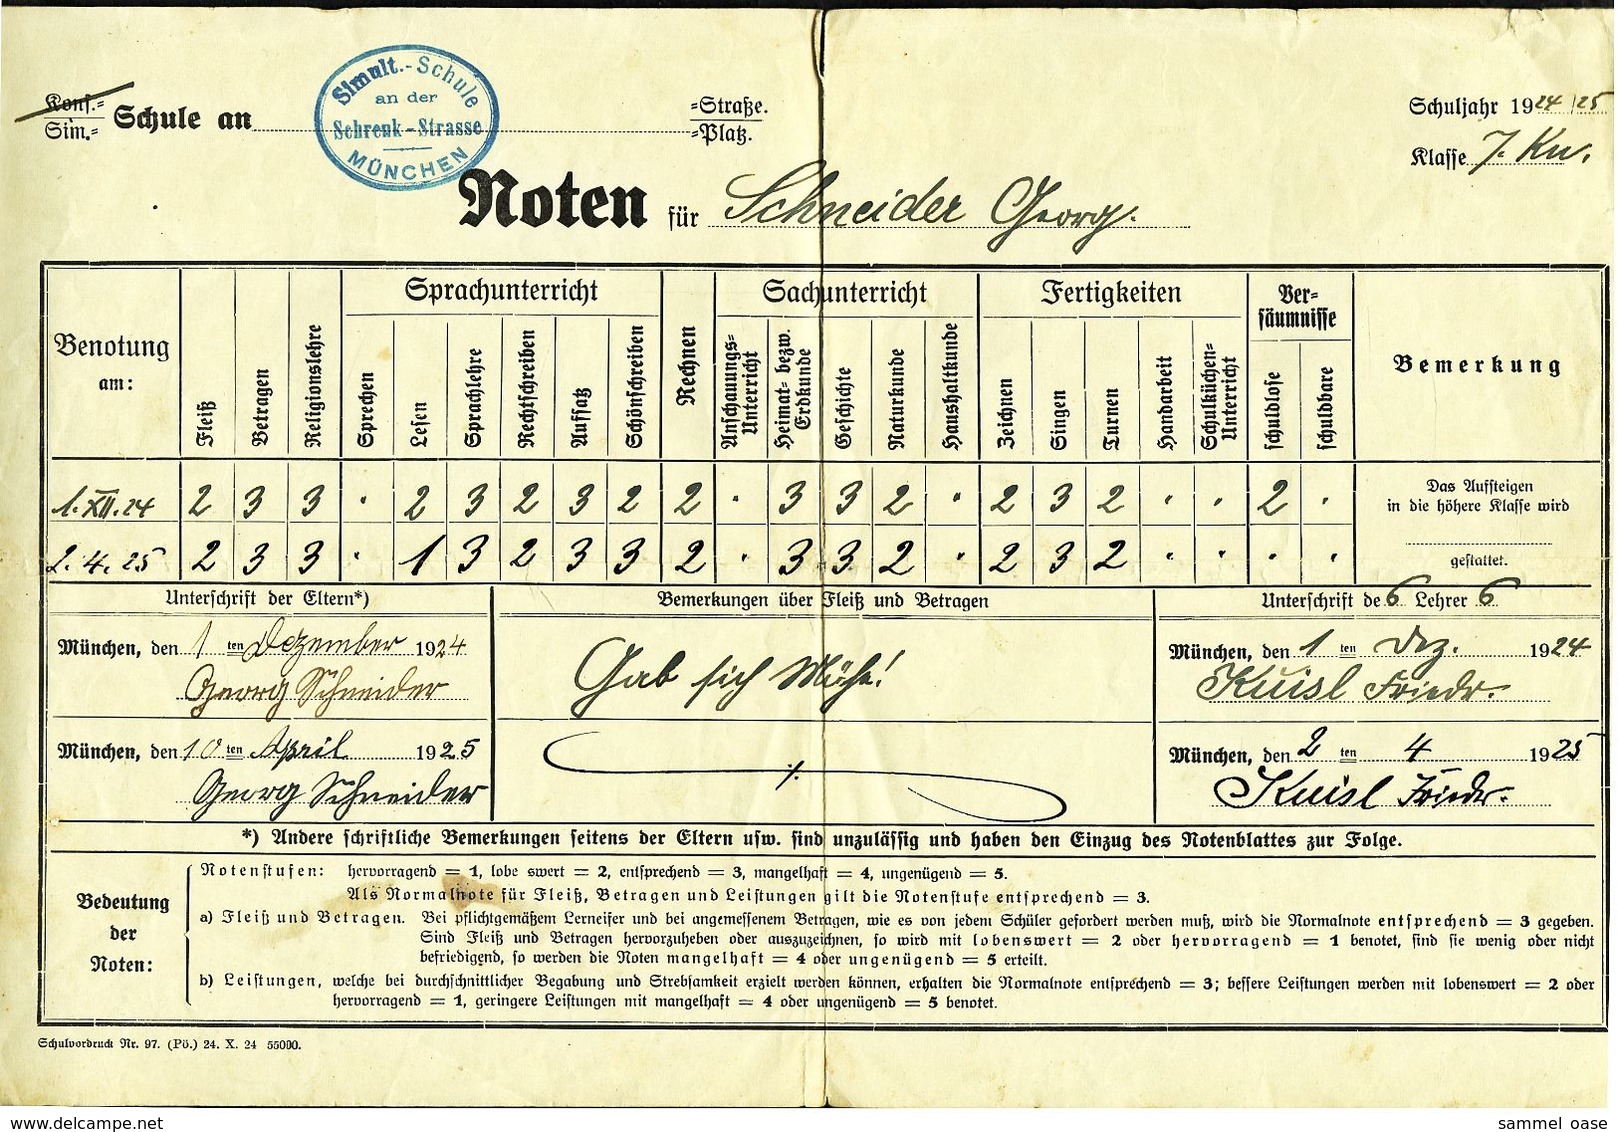 Konf.=
Sim.= Schule an =Straße.
=Platz.
Simult.-Schule
an der
Schrenk-Strasse
MÜNCHEN
Schuljahr 1924/25
Klasse 7. Kn.
Noten für Schneider Georg.
Benotung am: Fleiß Betragen Religionslehre Sprachunterricht Sprechen Lesen Sprachlehre Rechtschreiben Aufsatz Schönschreiben Rechnen Sachunterricht Anschauungs-Unterricht Heimat- bezw. Erdkunde Geschichte Naturkunde Haushaltkunde Fertigkeiten Zeichnen Singen Turnen Handarbeit Schulküchen-Unterricht Ver-säumnisse schuldlose schuldbare Bemerkung
1. XII. 24 2 3 3 · 2 3 2 3 2 2 · 3 3 2 · 2 3 2 · · 2 ·
2. 4. 25 2 3 3 · 1 3 2 3 3 2 · 3 3 2 · 2 3 2 · · · ·
Das Aufsteigen
in die höhere Klasse wird
gestattet.
Unterschrift der Eltern*) Bemerkungen über Fleiß und Betragen Unterschrift des Lehrers
München, den 1 ten Dezember 1924
Georg Schneider
Gab sich Mühe!
München, den 1 ten Dez. 1924
Kuisl Friedr.
München, den 10 ten April 1925
Georg Schneider
München, den 2 ten 4 1925
Kuisl Friedr.
*) Andere schriftliche Bemerkungen seitens der Eltern usw. sind unzulässig und haben den Einzug des Notenblattes zur Folge.
Bedeutung
der
Noten:
Notenstufen: hervorragend = 1, lobe swert = 2, entsprechend = 3, mangelhaft = 4, ungenügend = 5.
Als Normalnote für Fleiß, Betragen und Leistungen gilt die Notenstufe entsprechend = 3.
a) Fleiß und Betragen. Bei pflichtgemäßem Lerneifer und bei angemessenem Betragen, wie es von jedem Schüler gefordert werden muß, wird die Normalnote entsprechend = 3 gegeben.
Sind Fleiß und Betragen hervorzuheben oder auszuzeichnen, so wird mit lobenswert = 2 oder hervorragend = 1 benotet, sind sie wenig oder nicht
befriedigend, so werden die Noten mangelhaft = 4 oder ungenügend = 5 erteilt.
b) Leistungen, welche bei durchschnittlicher Begabung und Strebsamkeit erzielt werden können, erhalten die Normalnote entsprechend = 3; bessere Leistungen werden mit lobenswert = 2 oder
hervorragend = 1, geringere Leistungen mit mangelhaft = 4 oder ungenügend = 5 benotet.
Schulvordruck Nr. 97. (Pö.) 24. X. 24 55000.
www.delcampe.net
sammel_oase